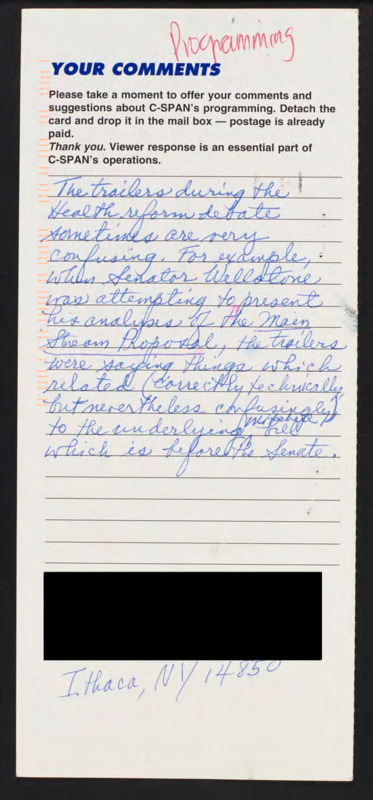 Programming
YOUR COMMENTS
Please take a moment to offer your comments and
suggestions about C-SPAN's programming. Detach the
card and drop it in the mail box — postage is already
paid.
Thank you. Viewer response is an essential part of
C-SPAN's operations.
The trailers during the
Health reform debate
sometimes are very
confusing. For example,
when Senator Wellstone
was attempting to present
his analysis of the Main
Stream Proposal, the trailers
were saying things which
related (correctly technically)
but nevertheless confusingly
to the underlying Mitchell bill
which is before the Senate.
Ithaca, NY 14850